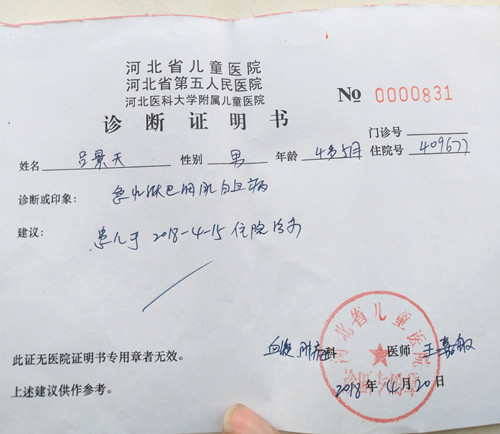 河北省儿童医院
河北省第五人民医院
河北医科大学附属儿童医院
№ 0000831
诊断证明书
门诊号
姓名 吕景天 性别 男 年龄 4岁5月 住院号 409677
诊断或印象: 急性淋巴细胞白血病
建议: 患儿于2018-4-15住院治疗
此证无医院证明书专用章者无效。
血液肿瘤科 医师 王嘉敏
上述建议供作参考。
2018年4月20日
河北省儿童医院
诊断专用章